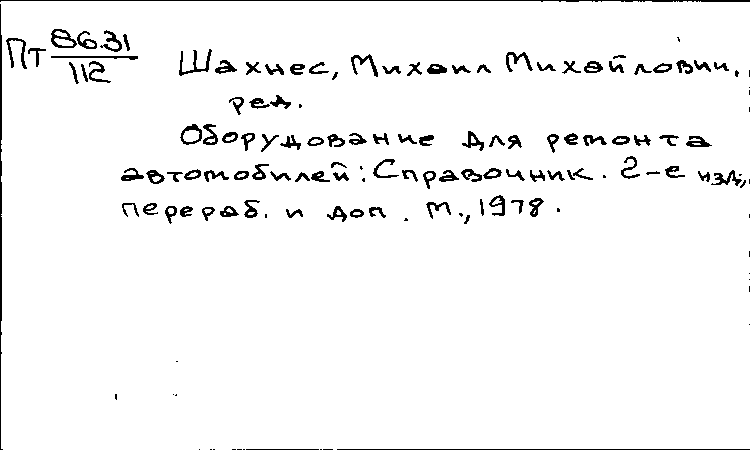 Пт 86.31
112
Шахнес, Михаил Михайлович,
ред.
Оборудование для ремонта
автомобилей: Справочник. 2-е изд.,
перераб. и доп. М., 1978.